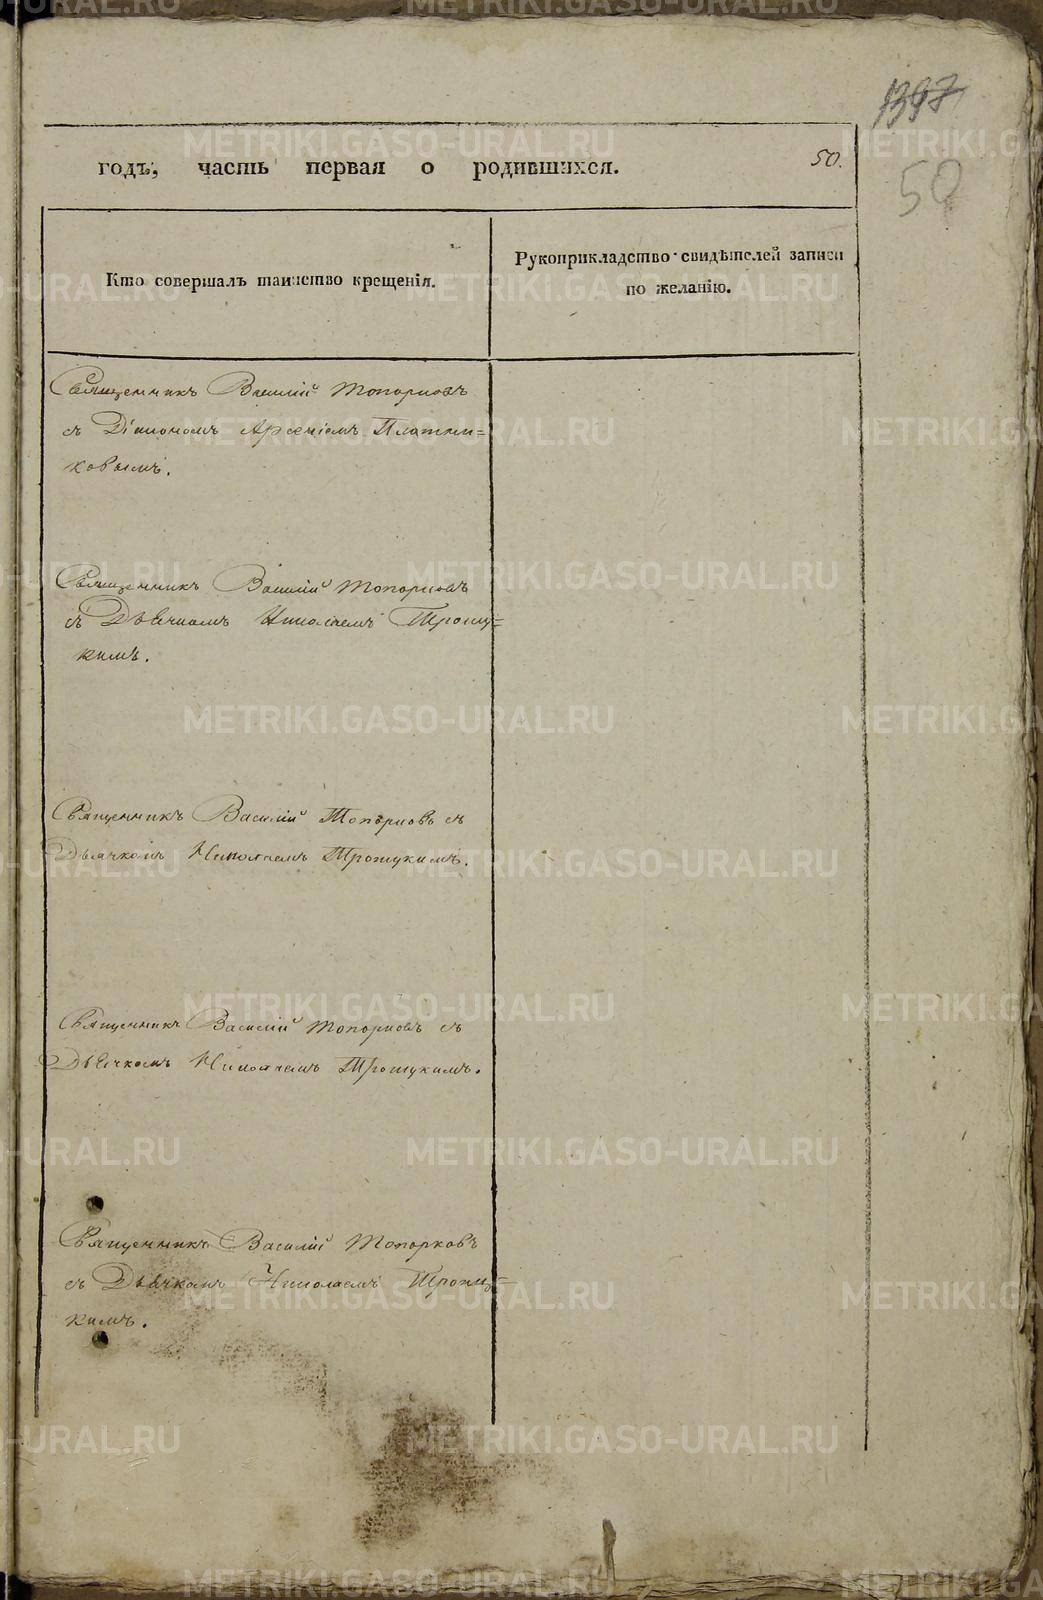 1397
годъ, часть первая о родившихся.
50.
50
Кто совершалъ таинство крещенія.
Рукоприкладство свидѣтелей записи
по желанію.
Священникъ Василій Топорковъ
съ Діакономъ Арсеніемъ Плотни=
ковымъ.
Священникъ Василій Топорковъ
съ Дьячкомъ Николаемъ
кимъ.
Священникъ Василій Топорковъ съ
Дьячкомъ Николаемъ
Священникъ Василій Топорковъ съ
Дьячкомъ Николаемъ
Священникъ Василій Топорковъ
съ Дьячкомъ Николаемъ
кимъ.
METRIKI.GASO-URAL.RU